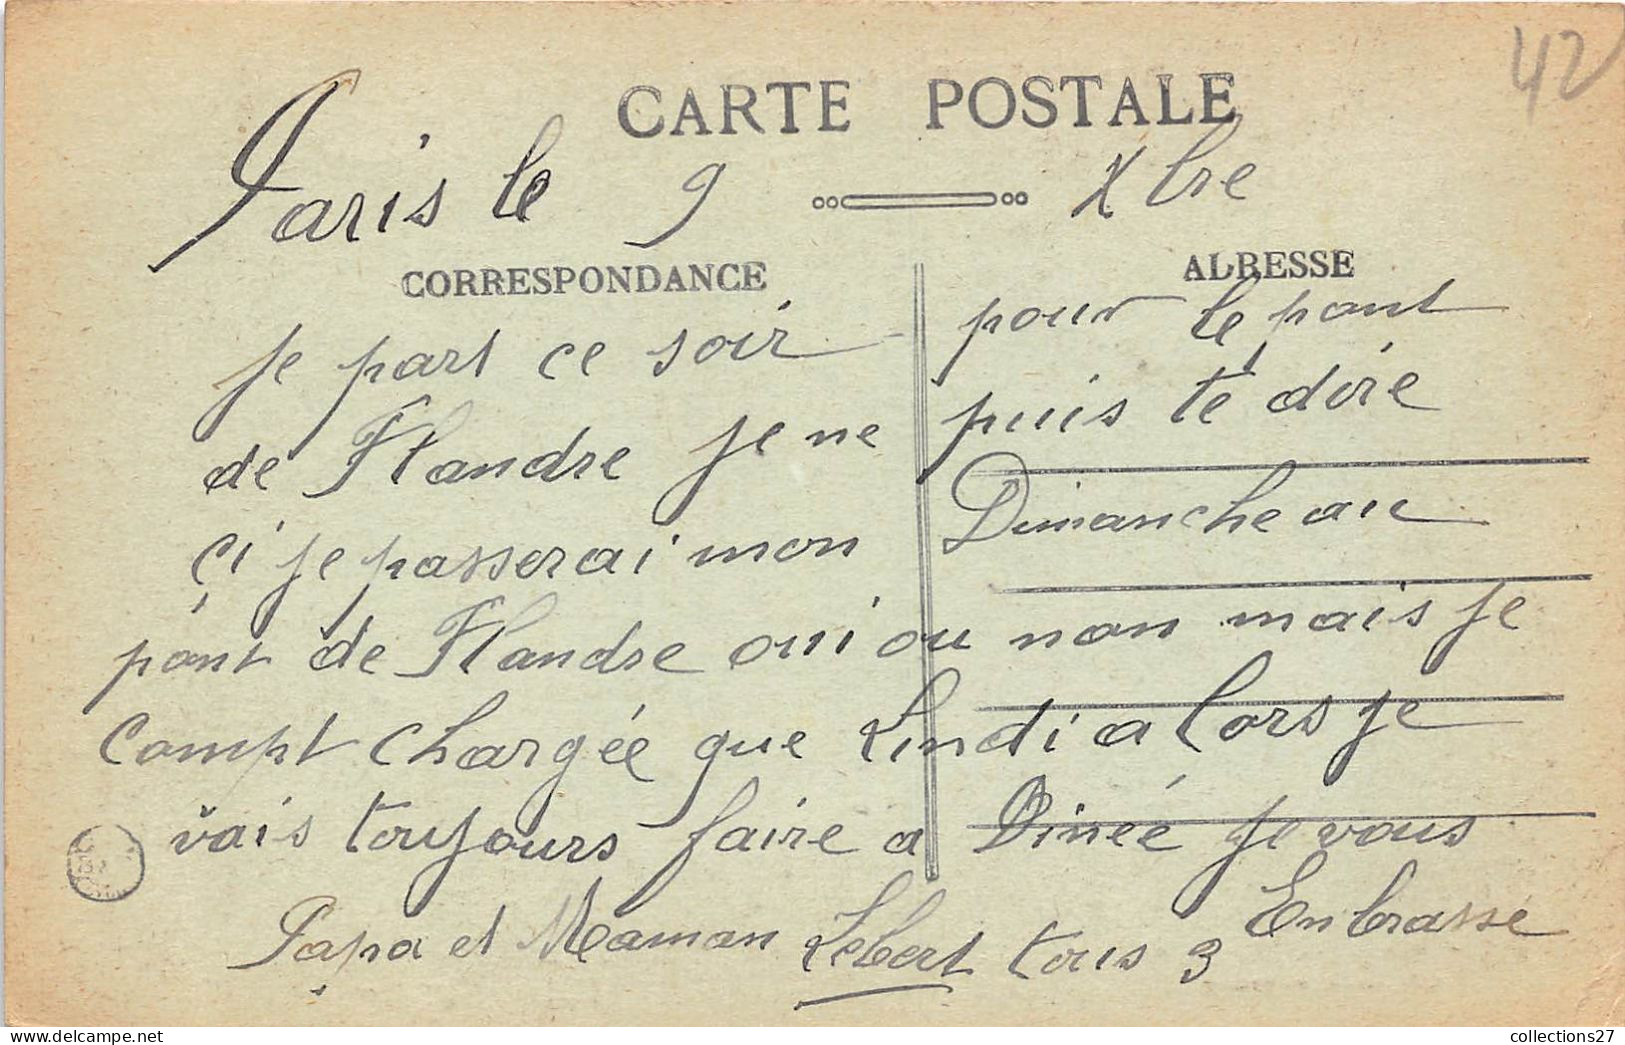 42
CARTE POSTALE
Paris le 9 Xbre
CORRESPONDANCE
ADRESSE
Je part ce soir pour le pont
de Flandre je ne puis te dire
çi je passerai mon Dimanche au
pont de Flandre oui ou non mais je
Compt chargée que Lindi alors je
vais toujours faire a Dineé je vous
Papa et Maman Lebert tous 3 Enbrasse
collections27